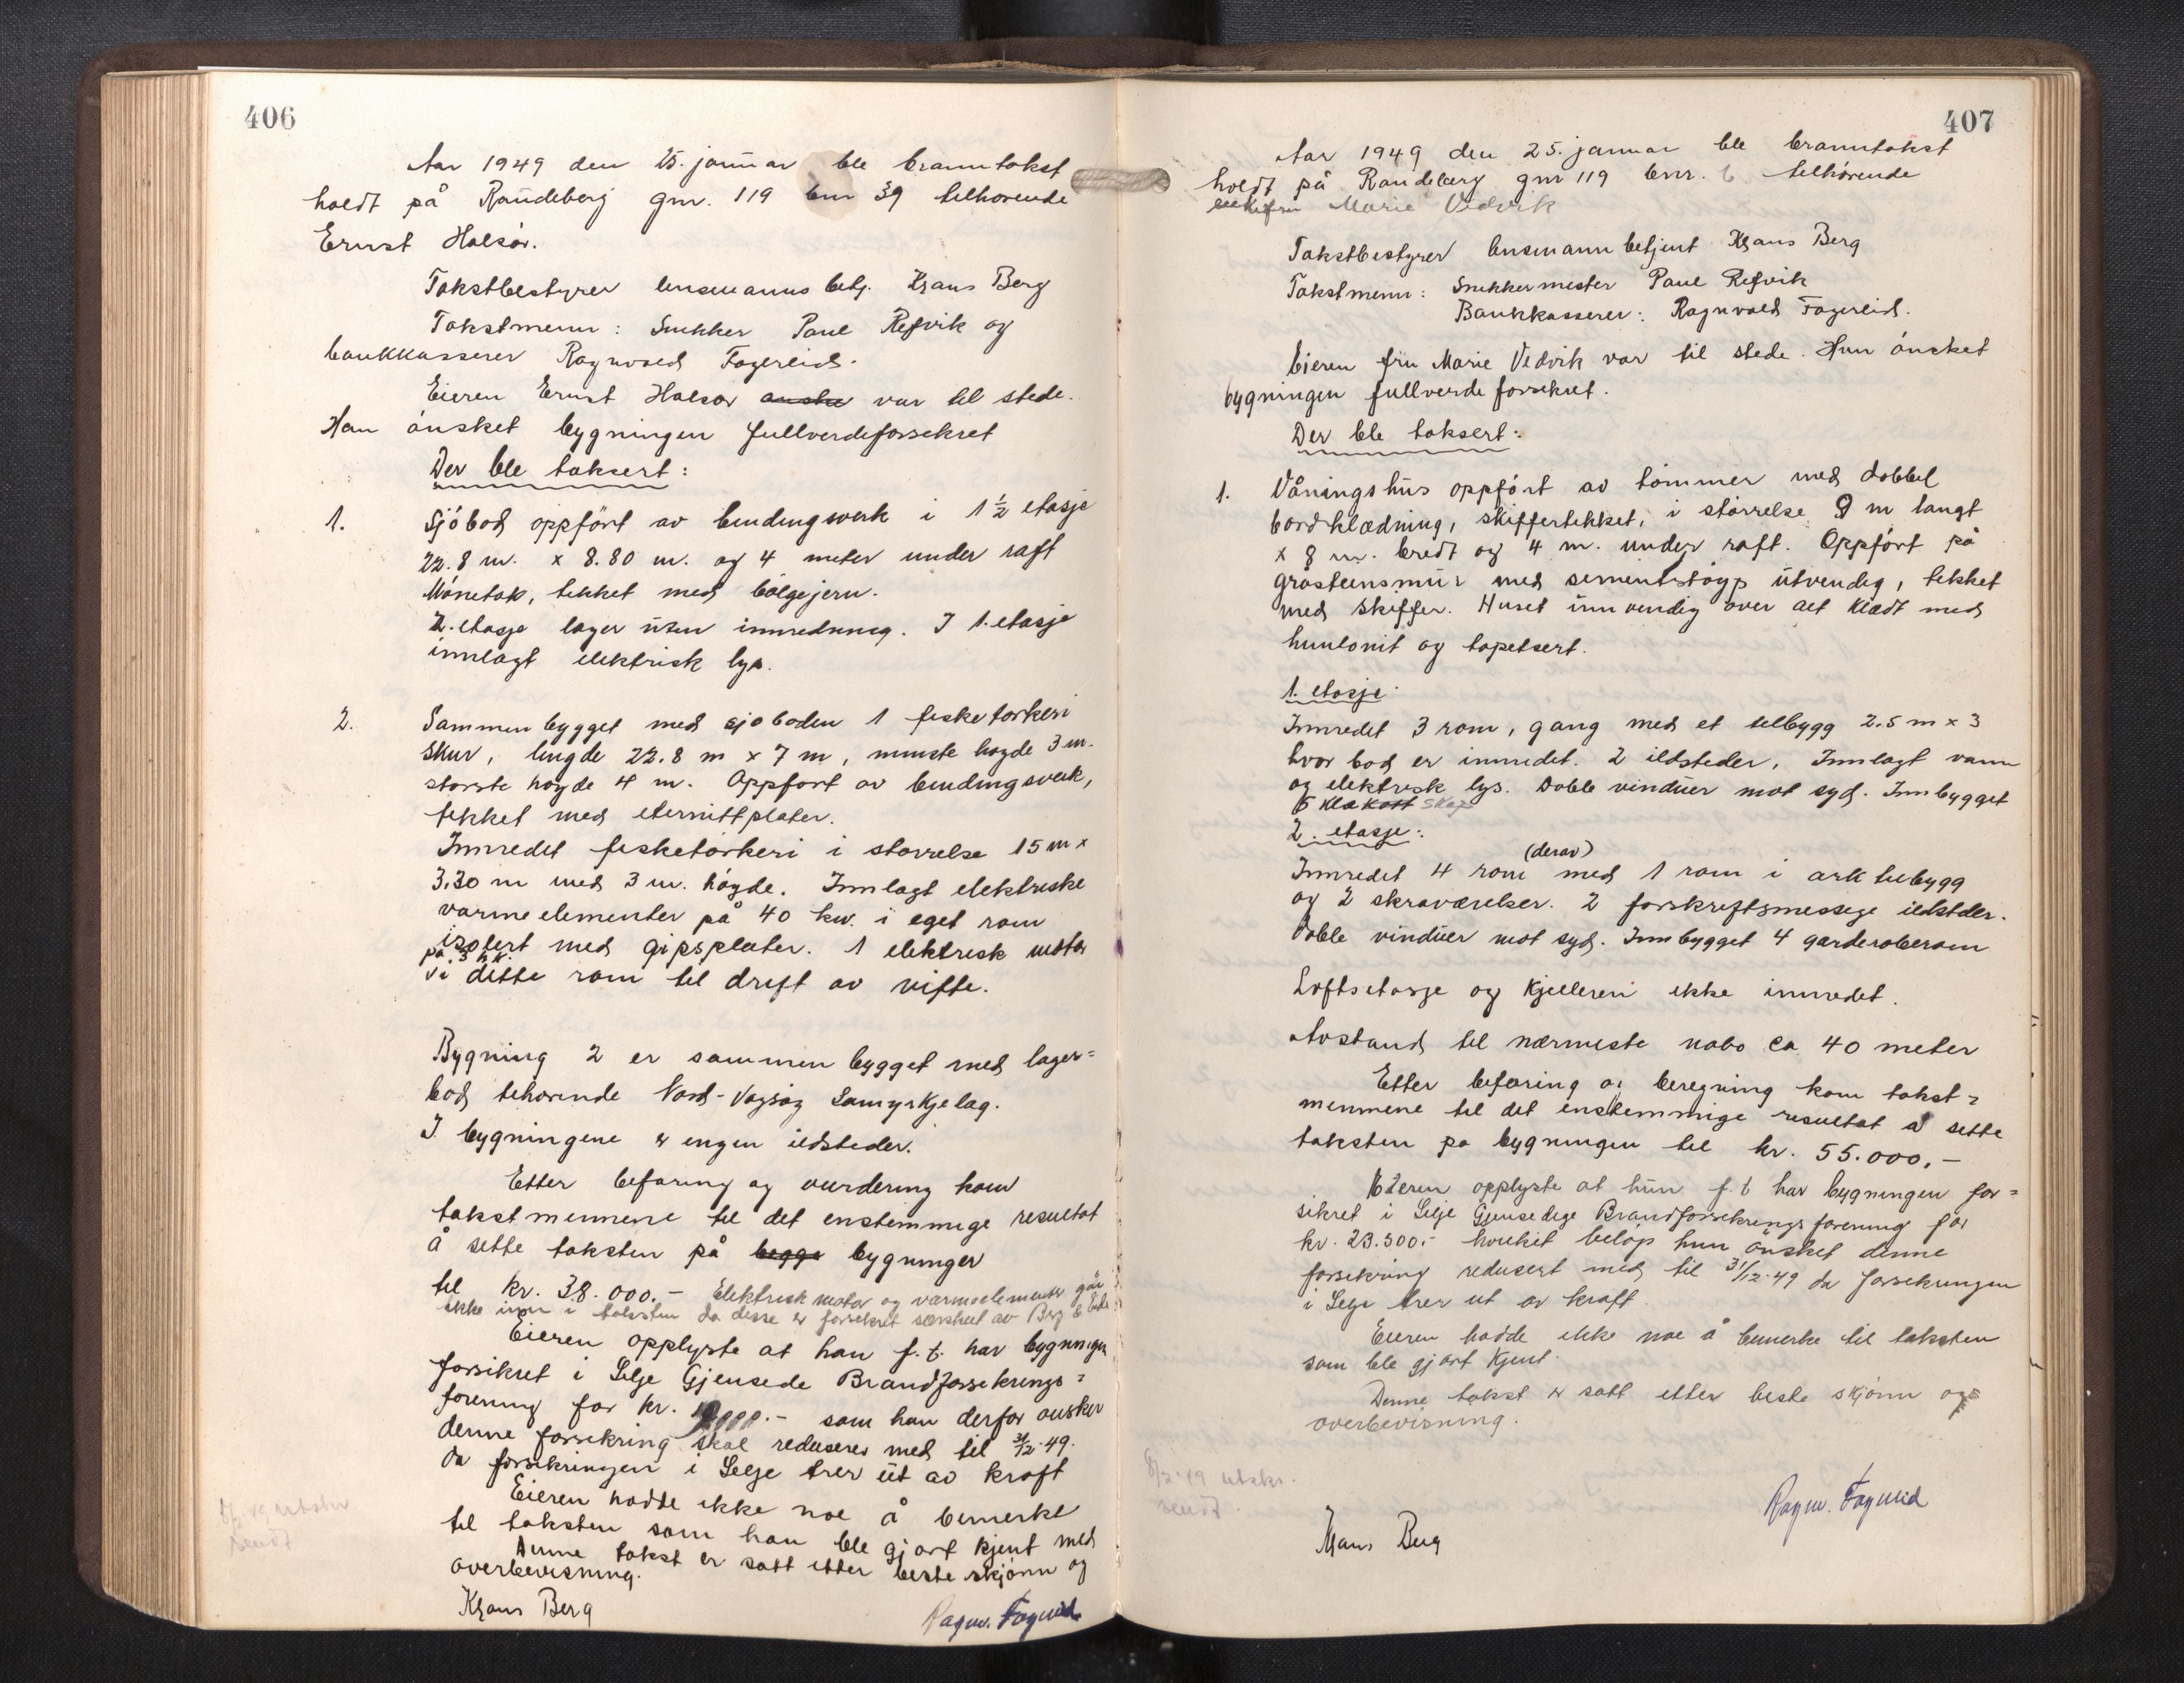 406
Aar 1949 den 25. januar ble branntakst
holdt på Raudeberg gnr. 119 bnr 39 tilhørende
Ernst Halsør.
Takstbestyrer lensmanns betj. Klaus Berg
Takstmenn: Snekker Paul Refvik og
bankkasserer Ragnvald Fagereid.
Eieren Ernst Halsør ønske var til stede.
Han ønsket bygningen fullverdeforsikret
Der ble taksert:
1. Sjøbod oppført av bindingsverk i 1 ½ etasje
22.8 m. x 8.80 m. og 4 meter under raft
Mønetak, tekket med bølgejern.
2. etasje lager uten innredning. I 1. etasje
innlagt elektrisk lys.
2. Sammenbygget med sjøboden 1 fisketørkeri
skur, lengde 22.8 m x 7 m, minste høyde 3 m.
største høyde 4 m. Oppført av bindingsverk,
tekket med eternittplater.
Innredet fisketørkeri i størrelse 15 m x
3.30 m med 3 m. høyde. Innlagt elektriske
varmeelementer på 40 kw. i eget rom
isolert med gipsplater. 1 elektrisk motor
på 3 hk.
i dette rom til drift av vifte.
Bygning 2 er sammenbygget med lager=
bod tihørende Nord-Vågsøy Samyrkjelag.
I bygningene er ingen ildsteder.
Etter befaring og vurdering kom
takstmennene til det enstemmige resultat
å sette taksten på begge bygninger
til kr. 38.000.- Elektrisk motor og varmeelementer går
ikke inn i taksten da disse er forsikret særskilt av
Eieren opplyste at han f.t. har bygningen
forsikret i Selje Gjensidige Brandforsikrings=
forening for kr. som han derfor ønsker
denne forsikring skal reduseres med til 31/12-49.
da forsikringen i Selje trer ut av kraft
Eieren hadde ikke noe å bemerke
til taksten som han ble gjort kjent med
Denne takst er satt etter beste skjønn og
overbevisning.
Klaus Berg
Ragnv. Fagereid
407
Aar 1949 den 25. januar ble branntakst
holdt på Raudeberg gnr 119 bnr. 6 tilhørende
enkefru Marie Vedvik
Takstbestyrer lensmannbetjent Klaus Berg
Takstmenn: Snekkermester Paul Refvik
Bankkasserer: Ragnvald Fagereid.
Eieren fru Marie Vedvik var til stede. Hun ønsket
bygningen fullverdeforsikret.
Der ble taksert:
1. Våningshus oppført av tømmer med dobbel
bordklædning, skiffertekket, i størrelse 9 m langt
x 8 m. bredt og 4 m. under raft. Oppført på
gråsteinsmur med sementstøyp utvendig, tekket
med skiffer. Huset innvendig over alt klædt med
huntonit og tapetsert.
1. etasje:
Innredet 3 rom, gang med et tilbygg 2.5 m x 3
hvor bod er innredet. 2 ildsteder. Innlagt vann
og elektrisk lys. Doble vinduer mot syd. Innbygget
skap
2. etasje:
(derav)
Innredet 4 rom med 1 rom i ark tilbygg
og 2 skraværelser. 2 forskriftsmessige ildsteder.
Doble vinduer mot syd. Innbygget 4 garderoberom
Loftsetasje og kjelleren ikke innredet.
Avstand til nærmeste nabo ca 40 meter
Etter befaring og beregning kom takst=
mennene til det enstemmige resultat å sette
taksten på bygningen til kr. 55.000.-
Eieren opplyste at hun f.t har bygningen for=
sikret i Selje Gjensidige Brandforsikringsforening for
kr. 23.500.- hvilket beløp hun ønsket denne
forsikring redusert med til 31/12-49 da forsikringen
i Selje trer ut av kraft.
Eieren hadde ikke noe å bemerke til taksten
som ble gjort kjent.
Denne takst er satt etter beste skjønn og
overbevisning.
Klaus Berg
Ragnv. Fagereid